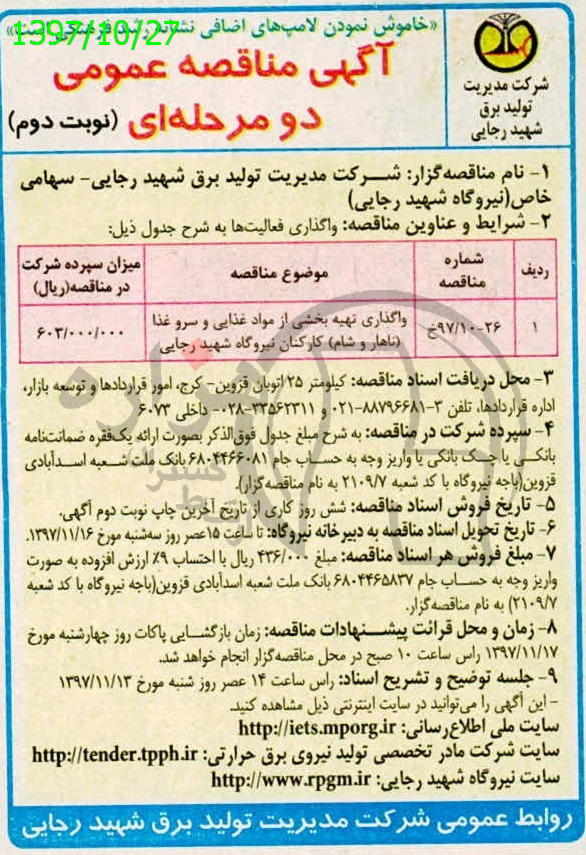 «خاموش نمودن لامپ‌های اضافی نشانه رشد فرهنگی است»
1397/10/27
آگهی مناقصه عمومی
دو مرحله‌ای (نوبت دوم)
شرکت مدیریت
تولید برق
شهید رجایی
۱- نام مناقصه‌گزار: شرکت مدیریت تولید برق شهید رجایی- سهامی
خاص(نیروگاه شهید رجایی)
۲- شرایط و عناوین مناقصه: واگذاری فعالیت‌ها به شرح جدول ذیل:
ردیف
شماره
مناقصه
موضوع مناقصه
میزان سپرده شرکت
در مناقصه(ریال)
۱
۹۷/۱۰-۲۶خ
واگذاری تهیه بخشی از مواد غذایی و سرو غذا
(ناهار و شام) کارکنان نیروگاه شهید رجایی
۶۰۳/۰۰۰/۰۰۰
۳- محل دریافت اسناد مناقصه: کیلومتر ۲۵ اتوبان قزوین- کرج، امور قراردادها و توسعه بازار،
اداره قراردادها، تلفن ۳-۸۸۷۹۶۶۸۱-۰۲۱ و ۳۳۵۶۲۳۱۱-۰۲۸- داخلی ۶۰۷۳
۴- سپرده شرکت در مناقصه: به شرح مبلغ جدول فوق‌الذکر بصورت ارائه یک‌فقره ضمانت‌نامه
بانکی یا چک بانکی یا واریز وجه به حساب جام ۶۸۰۴۴۶۶۰۸۱ بانک ملت شعبه اسدآبادی
قزوین(باجه نیروگاه با کد شعبه ۲۱۰۹/۷ به نام مناقصه‌گزار).
۵- تاریخ فروش اسناد مناقصه: شش روز کاری از تاریخ آخرین چاپ نوبت دوم آگهی.
۶- تاریخ تحویل اسناد مناقصه به دبیرخانه نیروگاه: تا ساعت ۱۵عصر روز سه‌شنبه مورخ ۱۳۹۷/۱۱/۱۶.
۷- مبلغ فروش هر اسناد مناقصه: مبلغ ۴۳۶/۰۰۰ ریال با احتساب ۹٪ ارزش افزوده به صورت
واریز وجه به حساب جام ۶۸۰۴۴۶۵۸۳۷ بانک ملت شعبه اسدآبادی قزوین(باجه نیروگاه با کد شعبه
۲۱۰۹/۷) به نام مناقصه‌گزار.
۸- زمان و محل قرائت پیشنهادات مناقصه: زمان بازگشایی پاکات روز چهارشنبه مورخ
۱۳۹۷/۱۱/۱۷ راس ساعت ۱۰ صبح در محل مناقصه‌گزار انجام خواهد شد.
۹- جلسه توضیح و تشریح اسناد: راس ساعت ۱۴ عصر روز شنبه مورخ ۱۳۹۷/۱۱/۱۳
- این آگهی را می‌توانید در سایت اینترنتی ذیل مشاهده کنید.
سایت ملی اطلاع‌رسانی: http://iets.mporg.ir
سایت شرکت مادر تخصصی تولید نیروی برق حرارتی: http://tender.tpph.ir
سایت نیروگاه شهید رجایی: http://www.rpgm.ir
روابط عمومی شرکت مدیریت تولید برق شهید رجایی